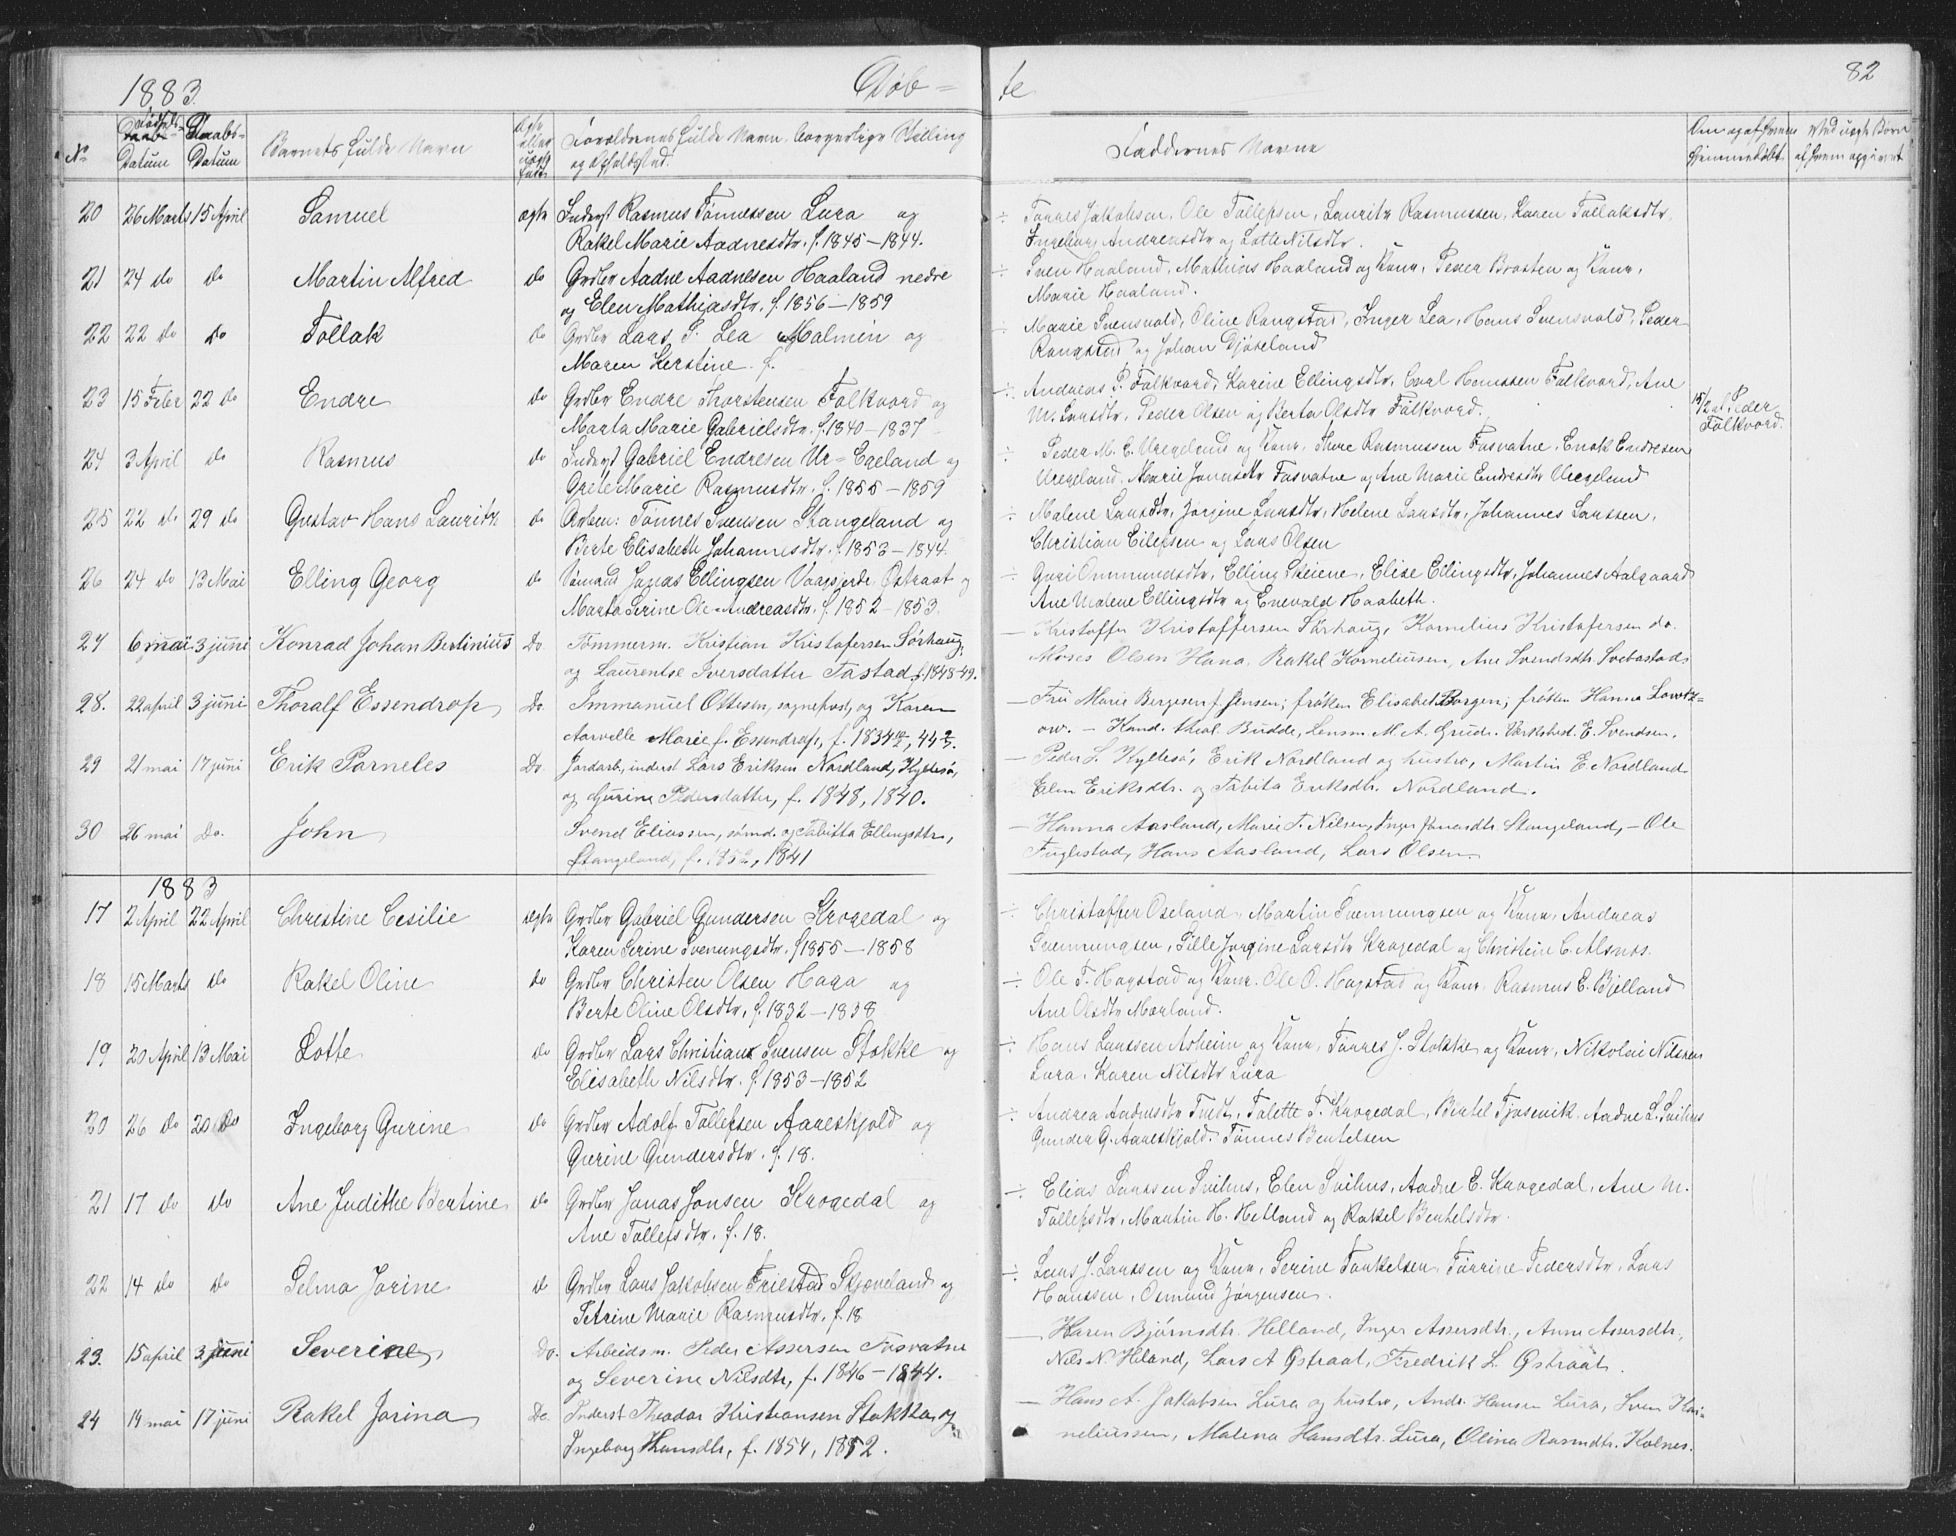 1883. Døb= te 82
No Fødsels- Datum Daabs- Datum Barnets fulde Navn Ægte eller uægte født Forældrenes fulde Navn, borgerlige Stilling og Opholdsted. Faddernes Navne Om og af hvem hjemmedøbt Ved uægte Børn af hvem opgivet
20 26 Marts 15 April Samuel ægte Inderst Rasmus Tønnessen Lura og ÷ Tørres Jakobsen, Ole Tollefsen, Lauritz Rasmussen, Karen Tollaksdtr,
Rakel Marie Aadnesdtr. f. 1845 – 1844. Ingeborg Andreasdtr og Lotte Nilsdtr.
21 24 do do Martin Alfred do Grdbr Aadne Aadnesen Haaland nedre ÷ Sven Haaland, Mathias Haaland og Kone, Peder Braaten og Kone,
og Elen Mathiasdtr. f. 1856 – 1859 Marie Haaland.
22 22 do do Tollak do Grdbr Lars S. Lea Malmin og ÷ Marie Svensvold, Oline Rangstad, Inger Lea, Hans Svensvold, Peder
Maren Kerstine f. Rangstad og Johan
23 15 Febr 22 do Endre do Grdbr Endre Thorstensen Folkvord og ÷ Andreas P. Folkvord, Karine Ellingsdtr, Carl Hanssen Folkvord, Ane 15/2 af Peder
Marta Marie Gabrielsdtr. f. 1840 – 1837 M. Larsdtr, Peder Olsen og Berta Olsdtr Folkvord. Folkvord.
24 3 April do Rasmus do Inderst Gabriel Endresen Ur=Egeland og Peder M. E. Uregeland og Kone, Thore Rasmussen Fosvatne, Enok Endresen
Grete Marie Rasmusdtr. f. 1855 – 1859 Uregeland. Marie Jonasdtr Fosvatne og Ane Marie Endresdtr Uregeland
25 22 do 29 do Gustav Hans Lauritz do Arbm: Tønnes Svensen Stangeland og ÷ Malene Larsdtr, Jørgine Larsdtr, Helene Larsdtr, Johannes Larssen,
Berte Elisabeth Johannesdtr. f. 1853 – 1844. Christian Eilefsen og Lars Olsen
26 24 do 13 Mai Elling Georg do Sømand Jonas Ellingsen Vaagsjerde Østraat og ÷ Guri Ommundsdtr, Elling Skeiene, Elise Ellingsdtr, Johannes Aalgaard
Marta Serine Ole-Andreasdtr. f. 1852 – 1853. Ane Malene Ellingsdtr og Enevald Haabeth.
27 6 mai 3 juni Konrad Johan Bertinius Do. Tømmerm. Kristian Kristofersen Sørhaug, — Kristoffer Kristoffersen Sørhaug, Kornelius Kristofersen do.
og Laurentse Iversdatter Tastad f. 1848-49. Moses Olsen Hana, Rakel Korneliusen, Ane Svendsdtr. Svebastad.
28. 22 april 3 juni Thoralf Essendrop Do. Immanuel Ottesen, sogneprest, og Karen — Fru Marie Bergesen f. Jensen; frøken Elisabet Borgen; frøken Hanna Lowtz=
Aarvelle Marie f. Essendrop, f. 1834, 44. ow. – Kand. theol. Budde, Lensm. M. A. Grude. Verksbest. E. Svendsen.
29 21 mai 17 juni Erik Parneles Do. Jordarb., inderst Lars Eriksen Nordland, Kyllesø, — Peder L. Kyllesø, Erik Nordland og hustru, Martin E. Nordland.
og Gurine Pedersdatter, f. 1848, 1840. Elen Eriksdtr. og Tabita Eriksdtr. Nordland.
30 26 mai Do. John Svend Eliassen, sømd. og Tabitta Ellingsdtr, — Hanna Aasland, Marie T. Nilsen, Inger Jonasdtr. Stangeland, – Ole
Stangeland, f. 1852, 1841 Fuglestad, Hans Aasland, Lars Olsen.
1883
17 2 April 22 April Christine Cesilie ægte Grdbr Gabriel Gundersen Skrogedal og ÷ Christoffer Oseland, Martin Svennungsen og Kone, Andreas
Karen Serine Svenungsdtr. f. 1855 – 1858 Svennungsen, Sille Jorgine Larsdtr Krogedal og Christine C. Alsnes.
18 15 Marts do Rakel Oline do Grdbr Christen Olsen Haga og ÷ Ole T. Hogstad og Kone. Ole O. Hogstad og Kone, Rasmus E. Bjelland
Berte Oline Olsdtr. f. 1832 – 1838 Ane Olsdtr Marland.
19 20 April 13 Mai Lotte do Grdbr Lars Christian Svensen Stokke og ÷ Hans Larssen Asheim og Kone, Tørres J. Stokke og Kone, Nikolai Nilssen
Elisabeth Nilsdtr. f. 1853 – 1852 Lura, Karen Nilsdtr Lura
20 26 do 20 do Ingeborg Gurine do Grdbr Adolf Tollefsen Aareskjold og ÷ Andrea Aadnesdtr Tvedt, Tolette T. Krogedal, Bertel Tjosevik. Aadne L. Svihus
Gurine Gundersdtr. f. 18. Gunder G. Aareskjold. Tønnes Bertelsen
21 17 do do Ane Judithe Bertine do Grdbr Jonas Jonsen Skrogedal og ÷ Elias Larssen Svihus, Elen Svihus, Aadne E. Krogedal, Ane M.
Ane Tollefsdtr. f. 18. Tollefsdtr, Martin H. Hetland og Rakel Bertelsdtr.
22 14 do do Selma Jorine do Grdbr Lars Jakobsen Friestad Skjæveland og ÷ Lars J. Larssen og Kone, Serine Torkelsen, Tørrine Pedersdtr, Lars
Petrine Marie Rasmusdtr. f. 18 Hanssen, Osmund Jørgensen.
23. 15 april 3 juni Severine Do. Arbeidsm. Peder Assersen Fosvatne — Karen Bjørnsdtr. Helland, Inger Assersdtr., Anne Assersdtr,
og Severine Nilsdtr, f. 1846 – 1844. Nils N. Heland, Lars A Østraat, Fredrik L. Østraat.
24 19 mai 17 juni Rakel Jorina Do. Inderst Theodor Kristiansen Stokka og — Hans A. Jakobsen Lura og hustru, Andr. Hansen Lura, Sven Kor-
Ingeborg Hansdtr, f. 1854, 1852. neliussen, Malena Hansdtr. Lura, Olina Rasmdtr. Kolnes.